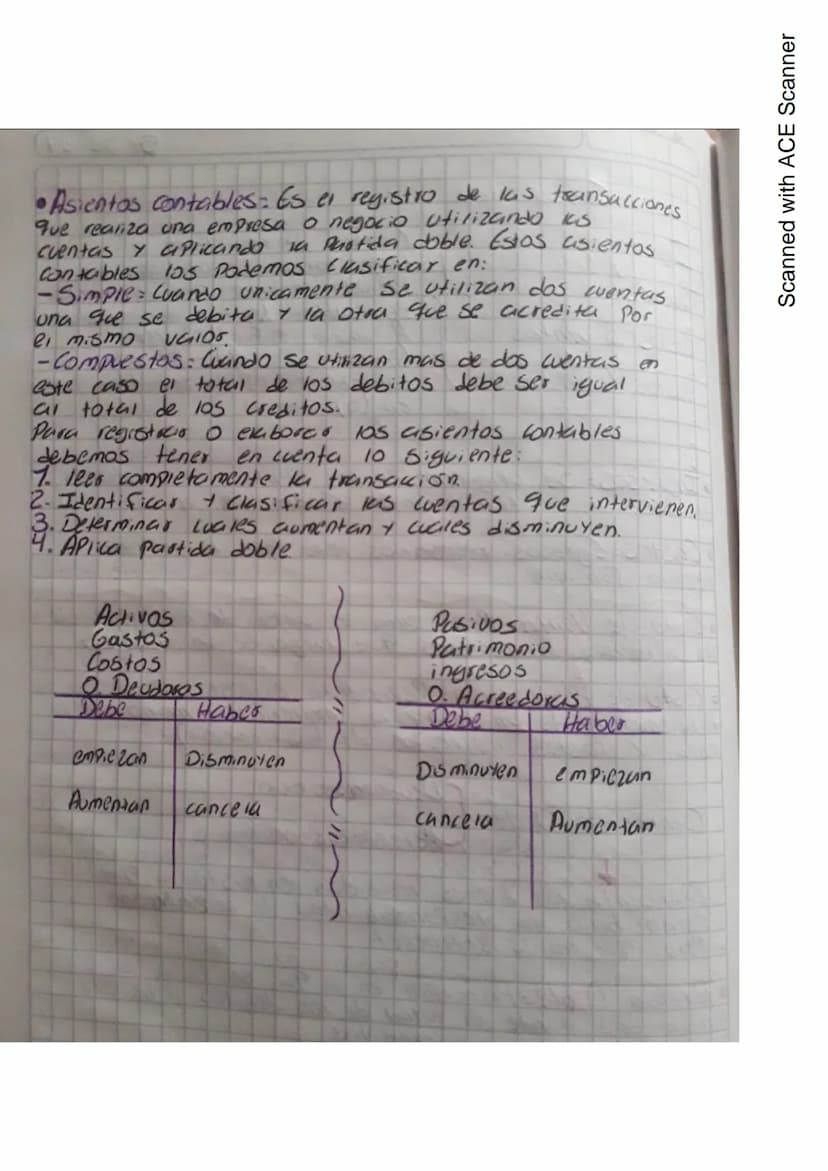 • Asientos contables: Es el registro de las transacciones
que realiza una empresa o negocio utilizando las
cuentas y aplicando la Partida doble. Estos asientos
contables los podemos clasificar en:
- Simple: Cuando unicamente se utilizan dos cuentas
una que se debita y la otra que se acredita por
el mismo valor.
- Compuestos: Cuando se utilizan mas de dos cuentas en
este caso el total de los debitos debe ser igual
al total de los creditos.
Para registrar o elaborar los asientos contables
debemos tener en cuenta lo siguiente:
1. leer completamente la transacción.
2. Identificar y clasificar las cuentas que intervienen.
3. Determinar cuales aumentan y cuales disminuyen.
4. Aplica partida doble
Activos
Gastos
Costos
O. Deudoras
Debe Haber
empiezan Disminuyen
Aumentan cancela
Pasivos
Patrimonio
ingresos
O. Acreedoras
Debe Haber
Disminuyen empiezan
cancela Aumentan
Scanned with ACE Scanner